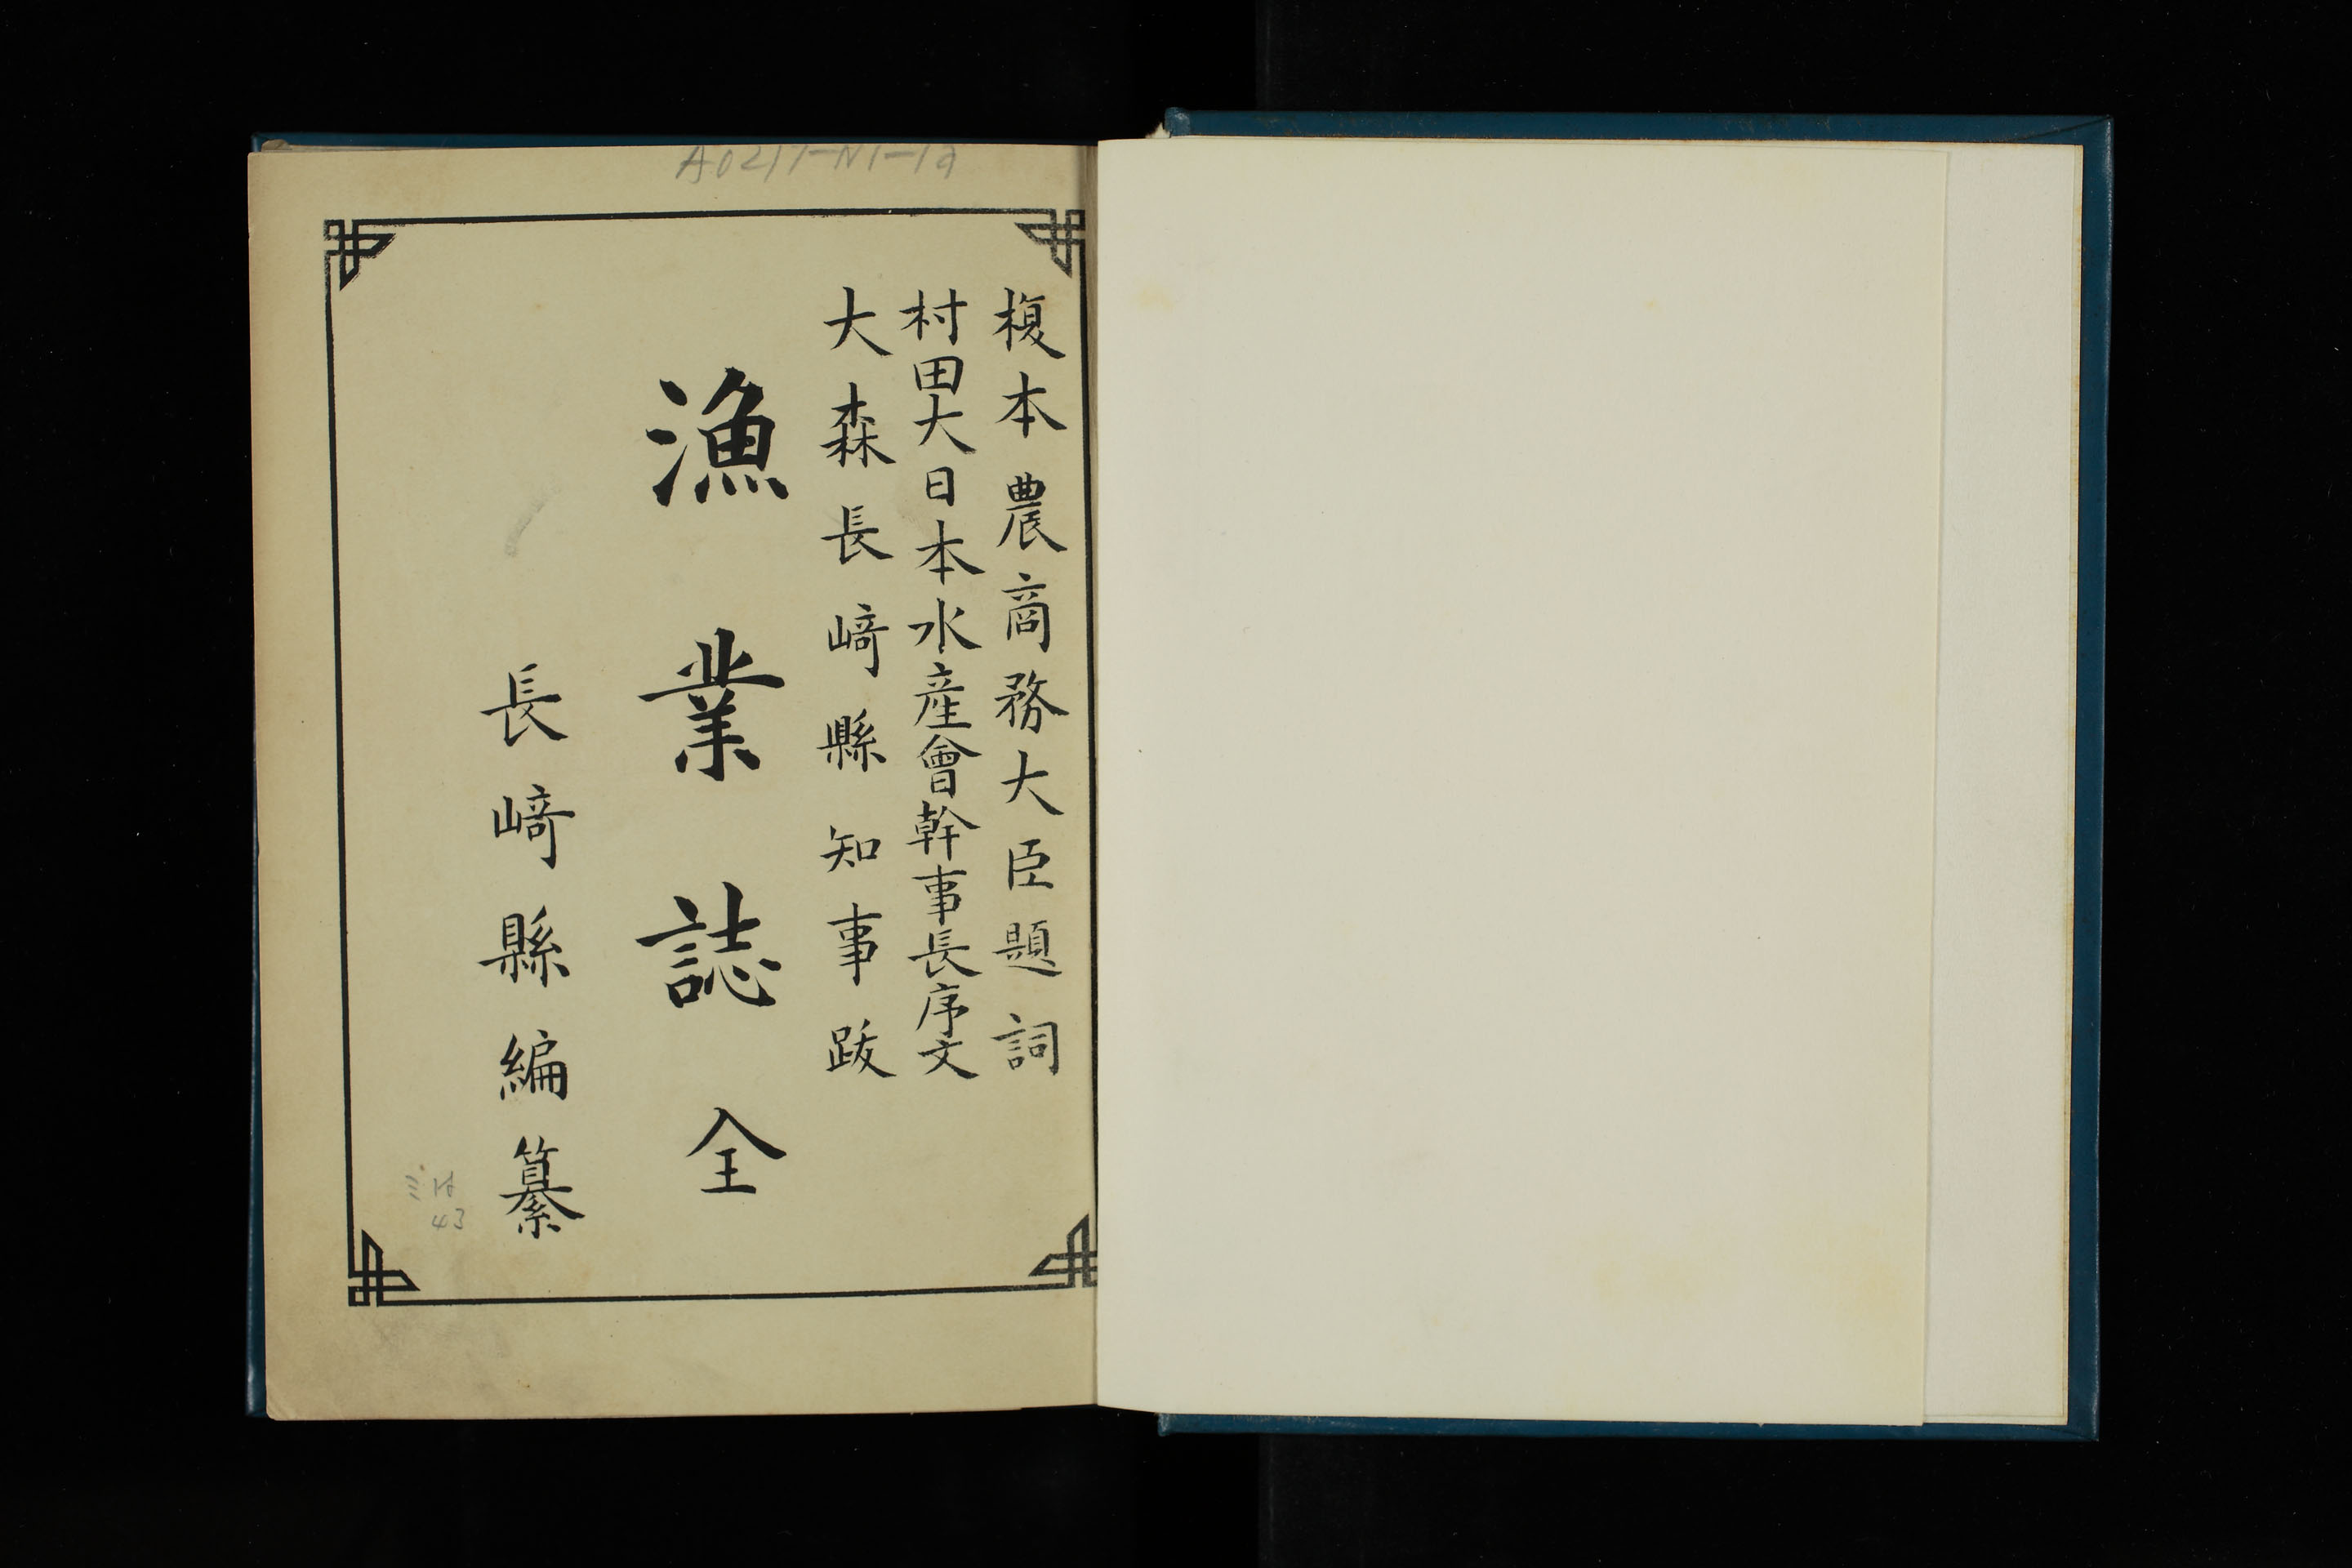 榎本農商務大臣題詞
村田大日本水産會幹事長序文
大森長﨑縣知事跋
漁業誌全
長﨑縣編纂
43